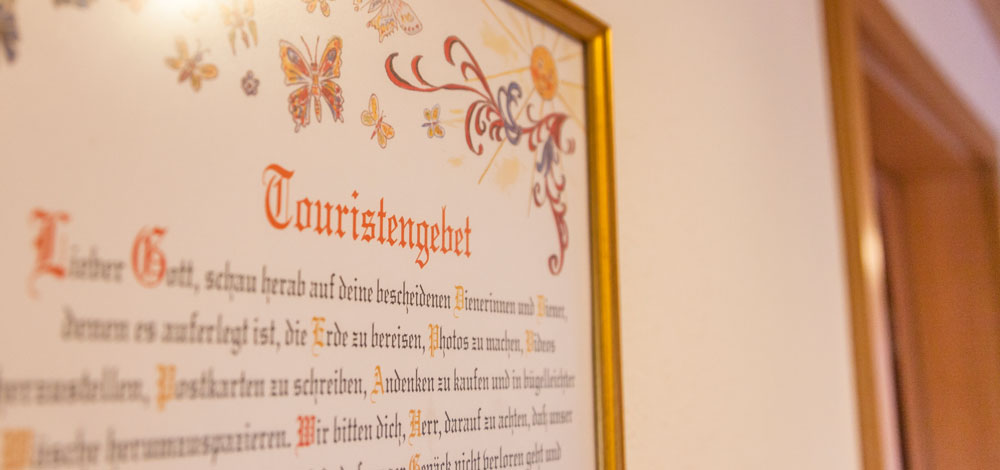 Touristengebet
Lieber Gott, schau herab auf deine bescheidenen Dienerinnen und Diener,
denen es auferlegt ist, die Erde zu bereisen, Photos zu machen, Videos
herzustellen, Postkarten zu schreiben, Andenken zu kaufen und in bügelleichter
Wäsche herumzuspazieren. Wir bitten dich, Herr, darauf zu achten, daß unser
Gepäck nicht verloren geht und